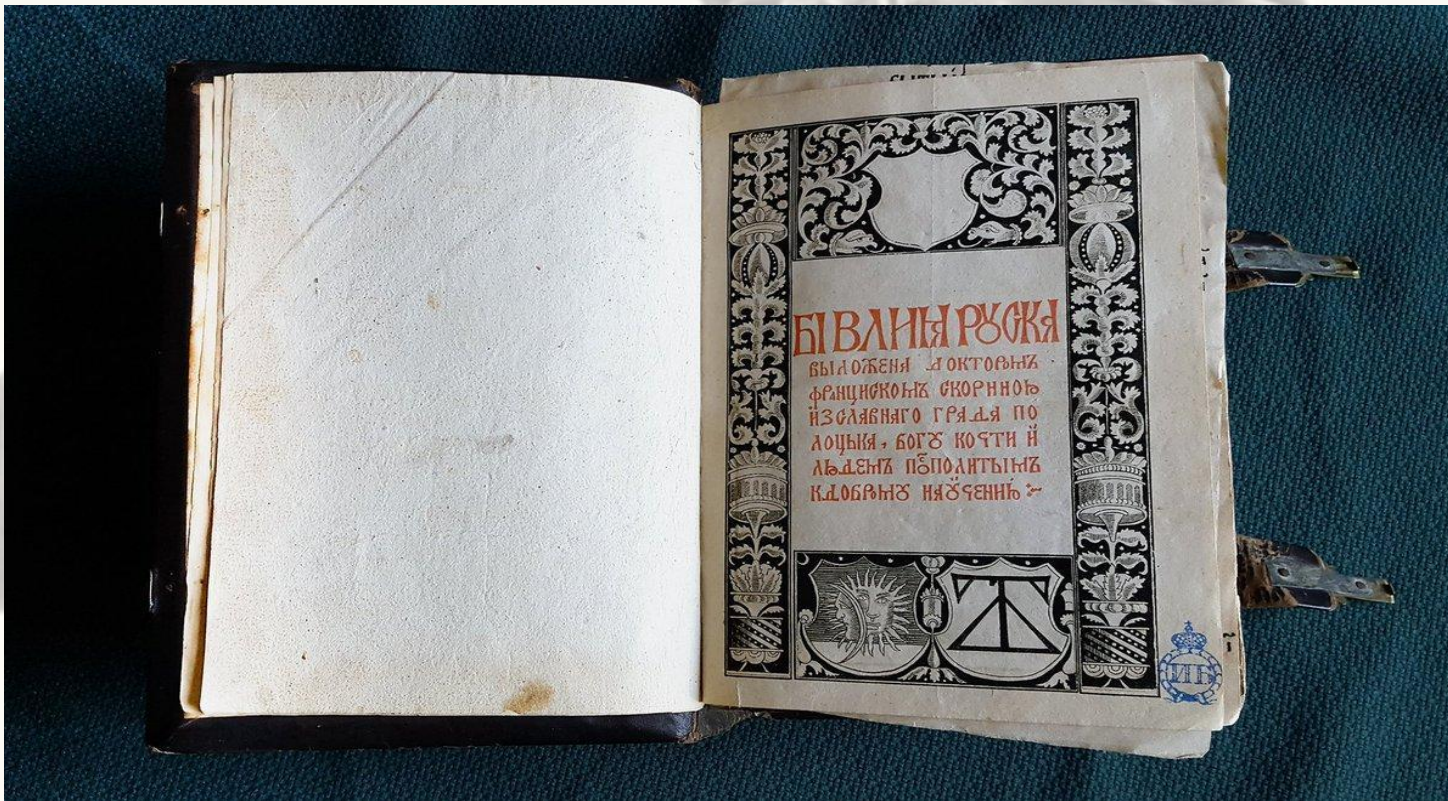 БІВЛИꙖ РꙊСКА
ВЫЛОЖЕНА ДОКТОРОМЪ
ФРАНЦИСКОМЪ СКОРИНОЮ
ИЗСЛАВНАГО ГРАДА ПО
ЛОЦЬКА, БОГꙊ КОЧТИ И
ЛЮДЕМЪ ПОСПОЛИТЫМЪ
КДОБРОМꙊ НАꙊЧЕНИЮ
ИБ